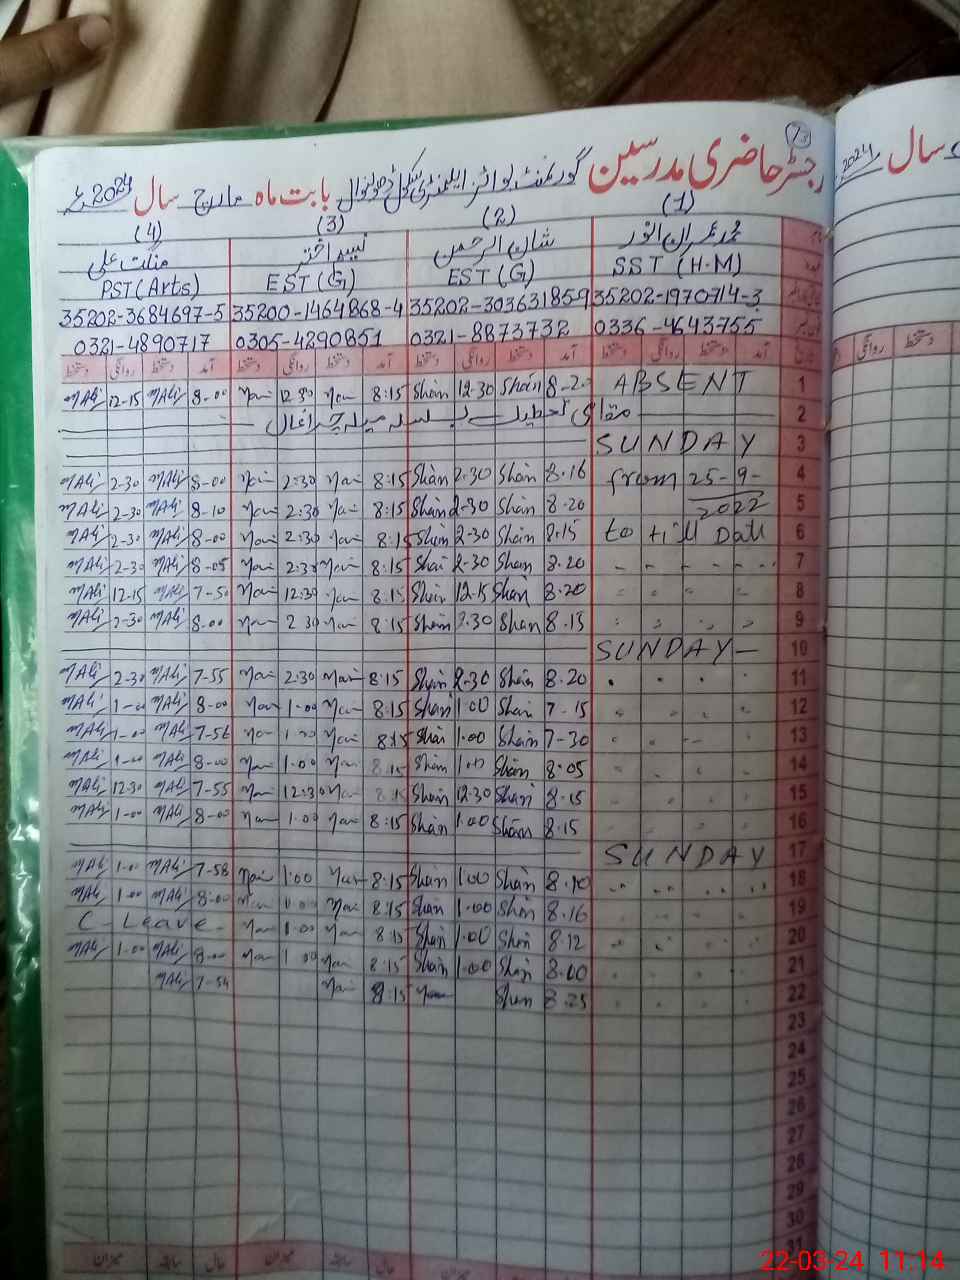 73
رجسٹر حاضری مدرسین گورنمنٹ بوائز ایلیمنٹری سکول بابت ماہ مارچ سال 2024ء
سال 2024
(1) (2) (3) (4)
محمد عمران انور شان الرحمن اختر علی
SST (H.M) EST (G) EST (G) PST (Arts)
35202-1970714-3 35202-3036318589 35200-1464868-4 35202-3684697-5
0336-4643755 0321-8873732 0305-4290851 0321-4890717
آمد دستخط روانگی دستخط آمد دستخط روانگی دستخط آمد دستخط روانگی دستخط آمد دستخط روانگی دستخط
1 ABSENT 8-20 Shan 12-30 Shan 8:15 12 30 8-00 MAli 12-15 MAli
2 مقامی تعطیل بسلسلہ میلہ چراغاں
3 SUNDAY
4 from 25-9- 8.16 Shan 2.30 Shan 8:15 2:30 8-00 MAli 2-30 MAli
5 2022 8-20 Shan 2-30 Shan 8:15 2:30 8-10 MAli 2-30 MAli
6 to till Date 8.15 Shan 2-30 Shan 8:15 2:30 8-00 MAli 2-30 MAli
7 8.20 Shan 2-30 Shan 8:15 2:30 8-05 MAli 2-30 MAli
8 8.20 Shan 12.15 Shan 8:15 12:30 7-50 MAli 12-15 MAli
9 8-15 Shan 2.30 Shan 8:15 2 30 8-00 MAli 2-30 MAli
10 SUNDAY
11 8.20 Shan 2-30 Shan 8:15 2:30 7-55 MAli 2-30 MAli
12 7-15 Shan 1.00 Shan 8:15 1.00 8-00 MAli 1-00 MAli
13 7-30 Shan 1.00 Shan 8:15 1.00 7-56 MAli 1-00 MAli
14 8.05 Shan 1.00 Shan 8.15 1.00 8-00 MAli 1-00 MAli
15 8.15 Shan 12.30 Shan 8.15 12:30 7-55 MAli 12-30 MAli
16 8.15 Shan 1.00 Shan 8:15 1.00 8-00 MAli 1-00 MAli
17 SUNDAY
18 8.10 Shan 1.00 Shan 8:15 1:00 7-58 MAli 1.00 MAli
19 8.16 Shan 1.00 Shan 8:15 1.00 8-00 MAli 1-00 MAli
20 8.12 Shan 1.00 Shan 8:15 1.00 C-Leave-
21 8.00 Shan 1.00 Shan 8:15 1.00 8-00 MAli 1.00 MAli
22 8.25 Shan 8:15 7-54 MAli
23
24
25
26
27
28
29
30
31
حال سابقہ میزان حال سابقہ میزان
22-03-24 11:14